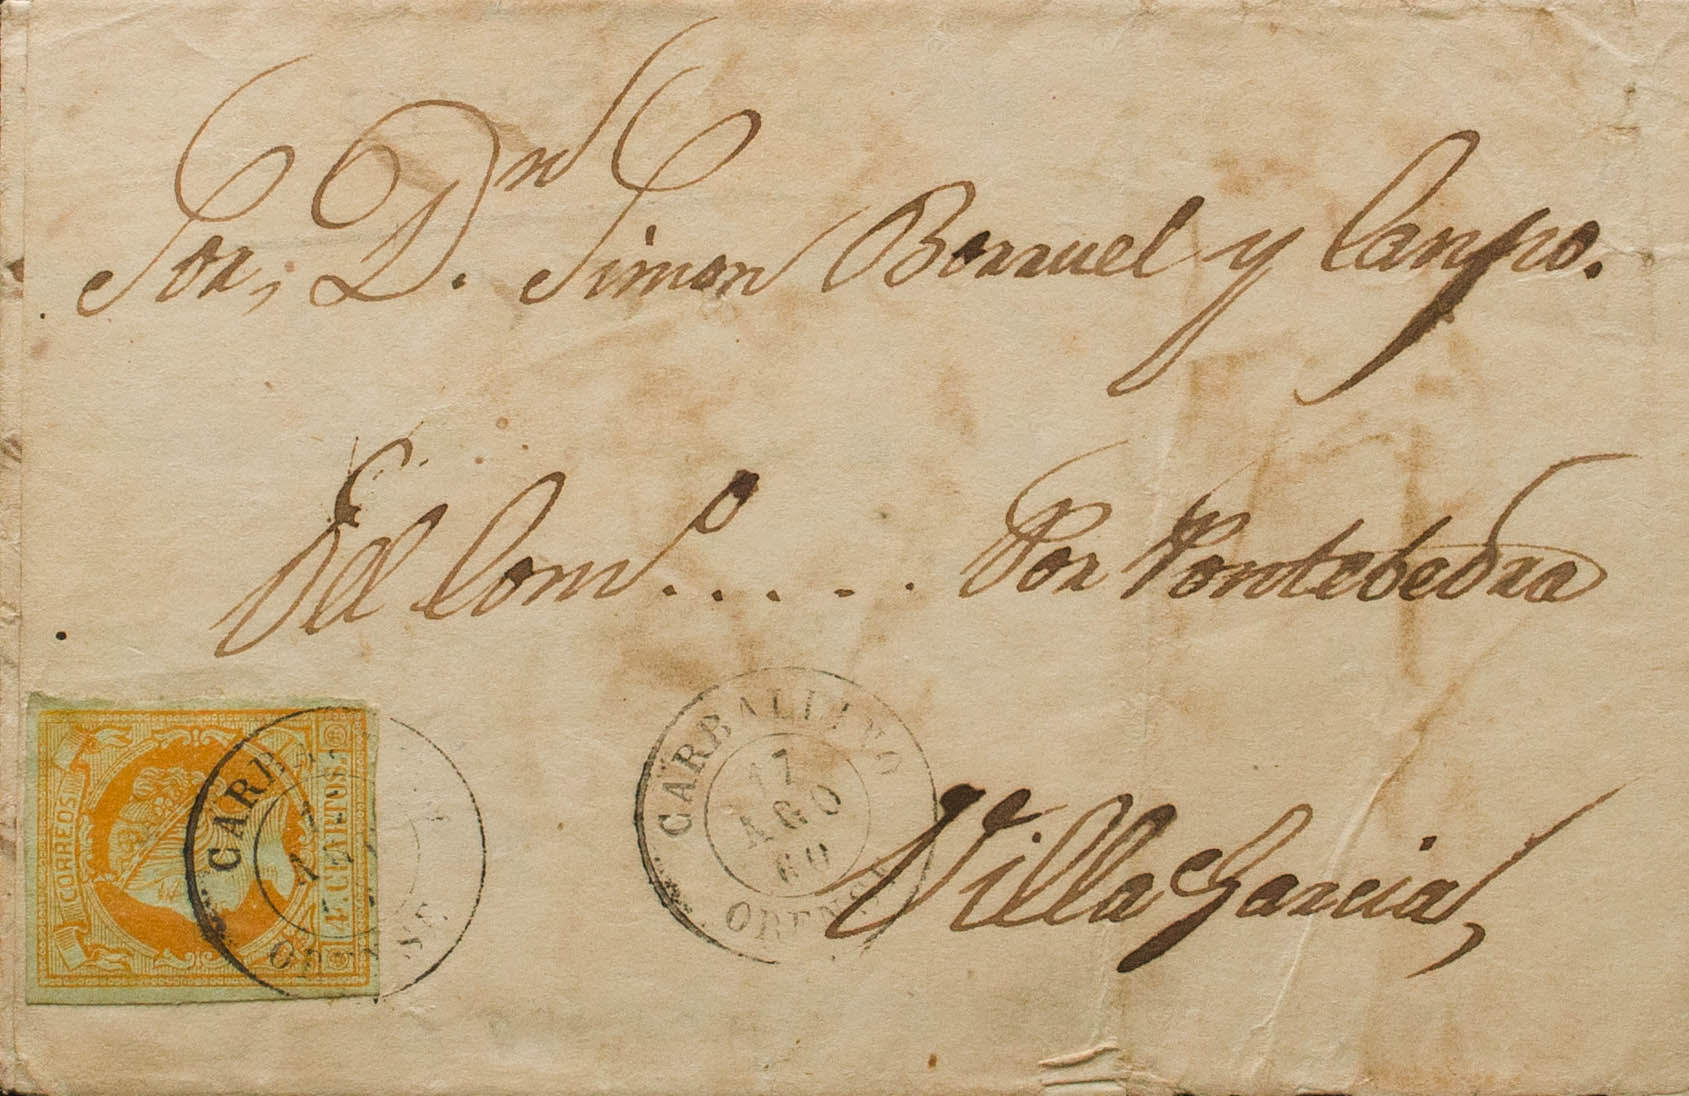 Sor, Dn. Simon Borruel y Canpo.
Del Como. . . . . Por Pontebedra
Villa Garcia,
CORREOS
4 CUARTOS.
CARBALLINO
17
AGO
60
ORENSE